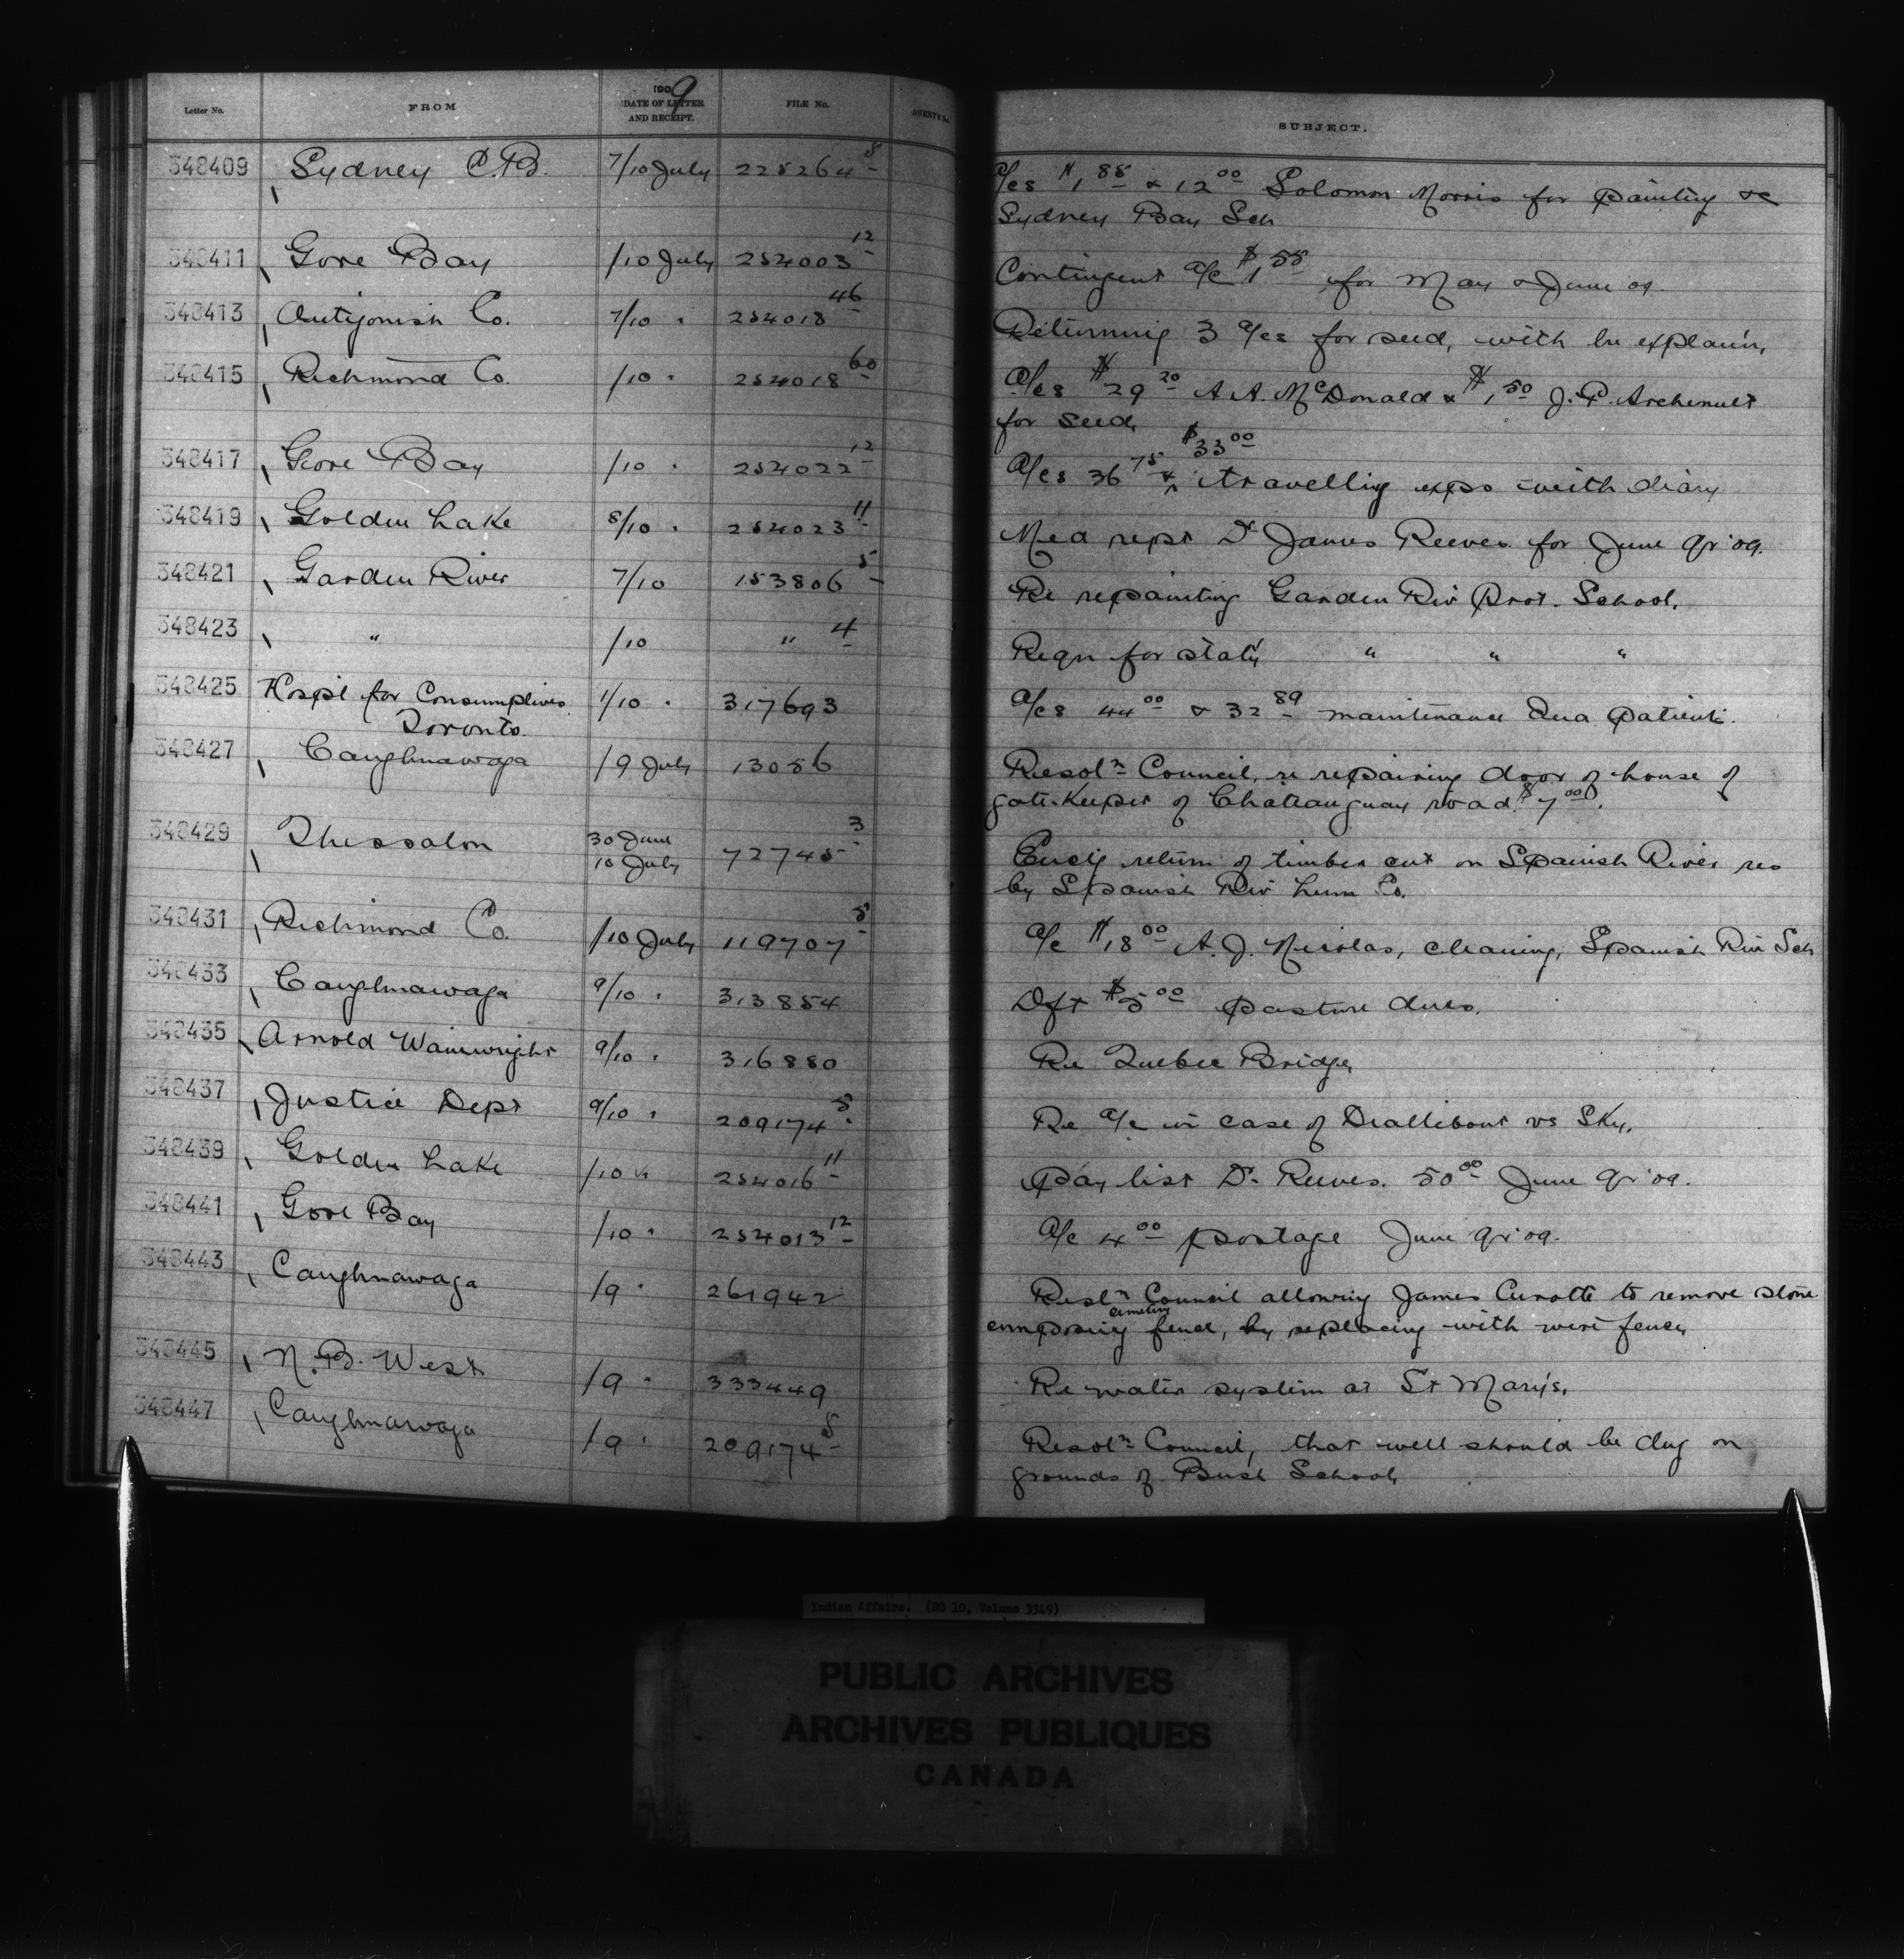 Letter No. FROM 1909 DATE OF LETTER AND RECEIPT. FILE No. AGENT'S No. SUBJECT.
348409 Sydney C.B. 7/10 July 225264 5 a/cs $1 88 & 12 00 Solomon Morris for painting &c
Sydney Bay Sch
348411 Gore Bay /10 July 254003 12 Contingent a/c $1 58 for May & June 09.
348413 Antigonish Co. 7/10 " 254018 46 Returning 3 a/cs for seed, with
348415 Richmond Co. /10 " 254018 60 a/cs $29 20 A.A. McDonald & $1 50 J.P.
for seed,
348417 Gore Bay /10 " 254022 12 a/cs 36 75 & $33 00 travelling exps with diary
348419 Golden Lake 8/10 " 254023 11 Med rept Dr James Reeves for June qr '09.
348421 Garden River 7/10 153806 5 Re repainting Garden Riv Prot. School.
348423 " /10 " 4 Reqn for stat'y " " "
348425 Hospl for Consumptives 1/10 " 317693 a/cs 44 00 & 32 89 maintenance patients.
Toronto.
348427 Caughnawaga /9 July 13086 Resoln Council, re repairing door of house of
gate-keeper of Chateauguay road $7 00.
348429 Thessalon 30 June 10 July 72745 3 return of timber cut on Spanish River res
by Spanish Riv Lum Co.
348431 Richmond Co. /10 July 119707 5 a/c $18 00 A.J. Nicolas, cleaning, Spanish Riv Sch
348433 Caughnawaga 9/10 " 313854 Dft $5 00 pasture dues.
348435 Arnold Wainwright 9/10 " 316880 Re Quebec Bridge
348437 Justice Dept 9/10 " 209174 5 Re a/c in case of vs Sky.
348439 Golden Lake /10 " 254016 11 Pay list Dr. Reeves. 50 00 June qr '09.
348441 Gore Bay /10 " 254013 12 a/c 4 00 postage June qr '09.
348443 Caughnawaga /9 " 261942 Resln Council allowing James to remove stone
composing cemetery fence, by replacing with wire fence
348445 N.B. West /9 " 333449 Re water system at St Mary's.
348447 Caughnawaga /9 " 209174 5 Resoln Council, that well should be dug on
grounds of Bush School
Indian Affairs. (RG 10, Volume 3349)
PUBLIC ARCHIVES
ARCHIVES PUBLIQUES
CANADA